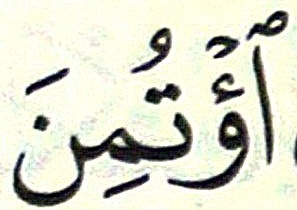 ٱؤْتُمِنَ